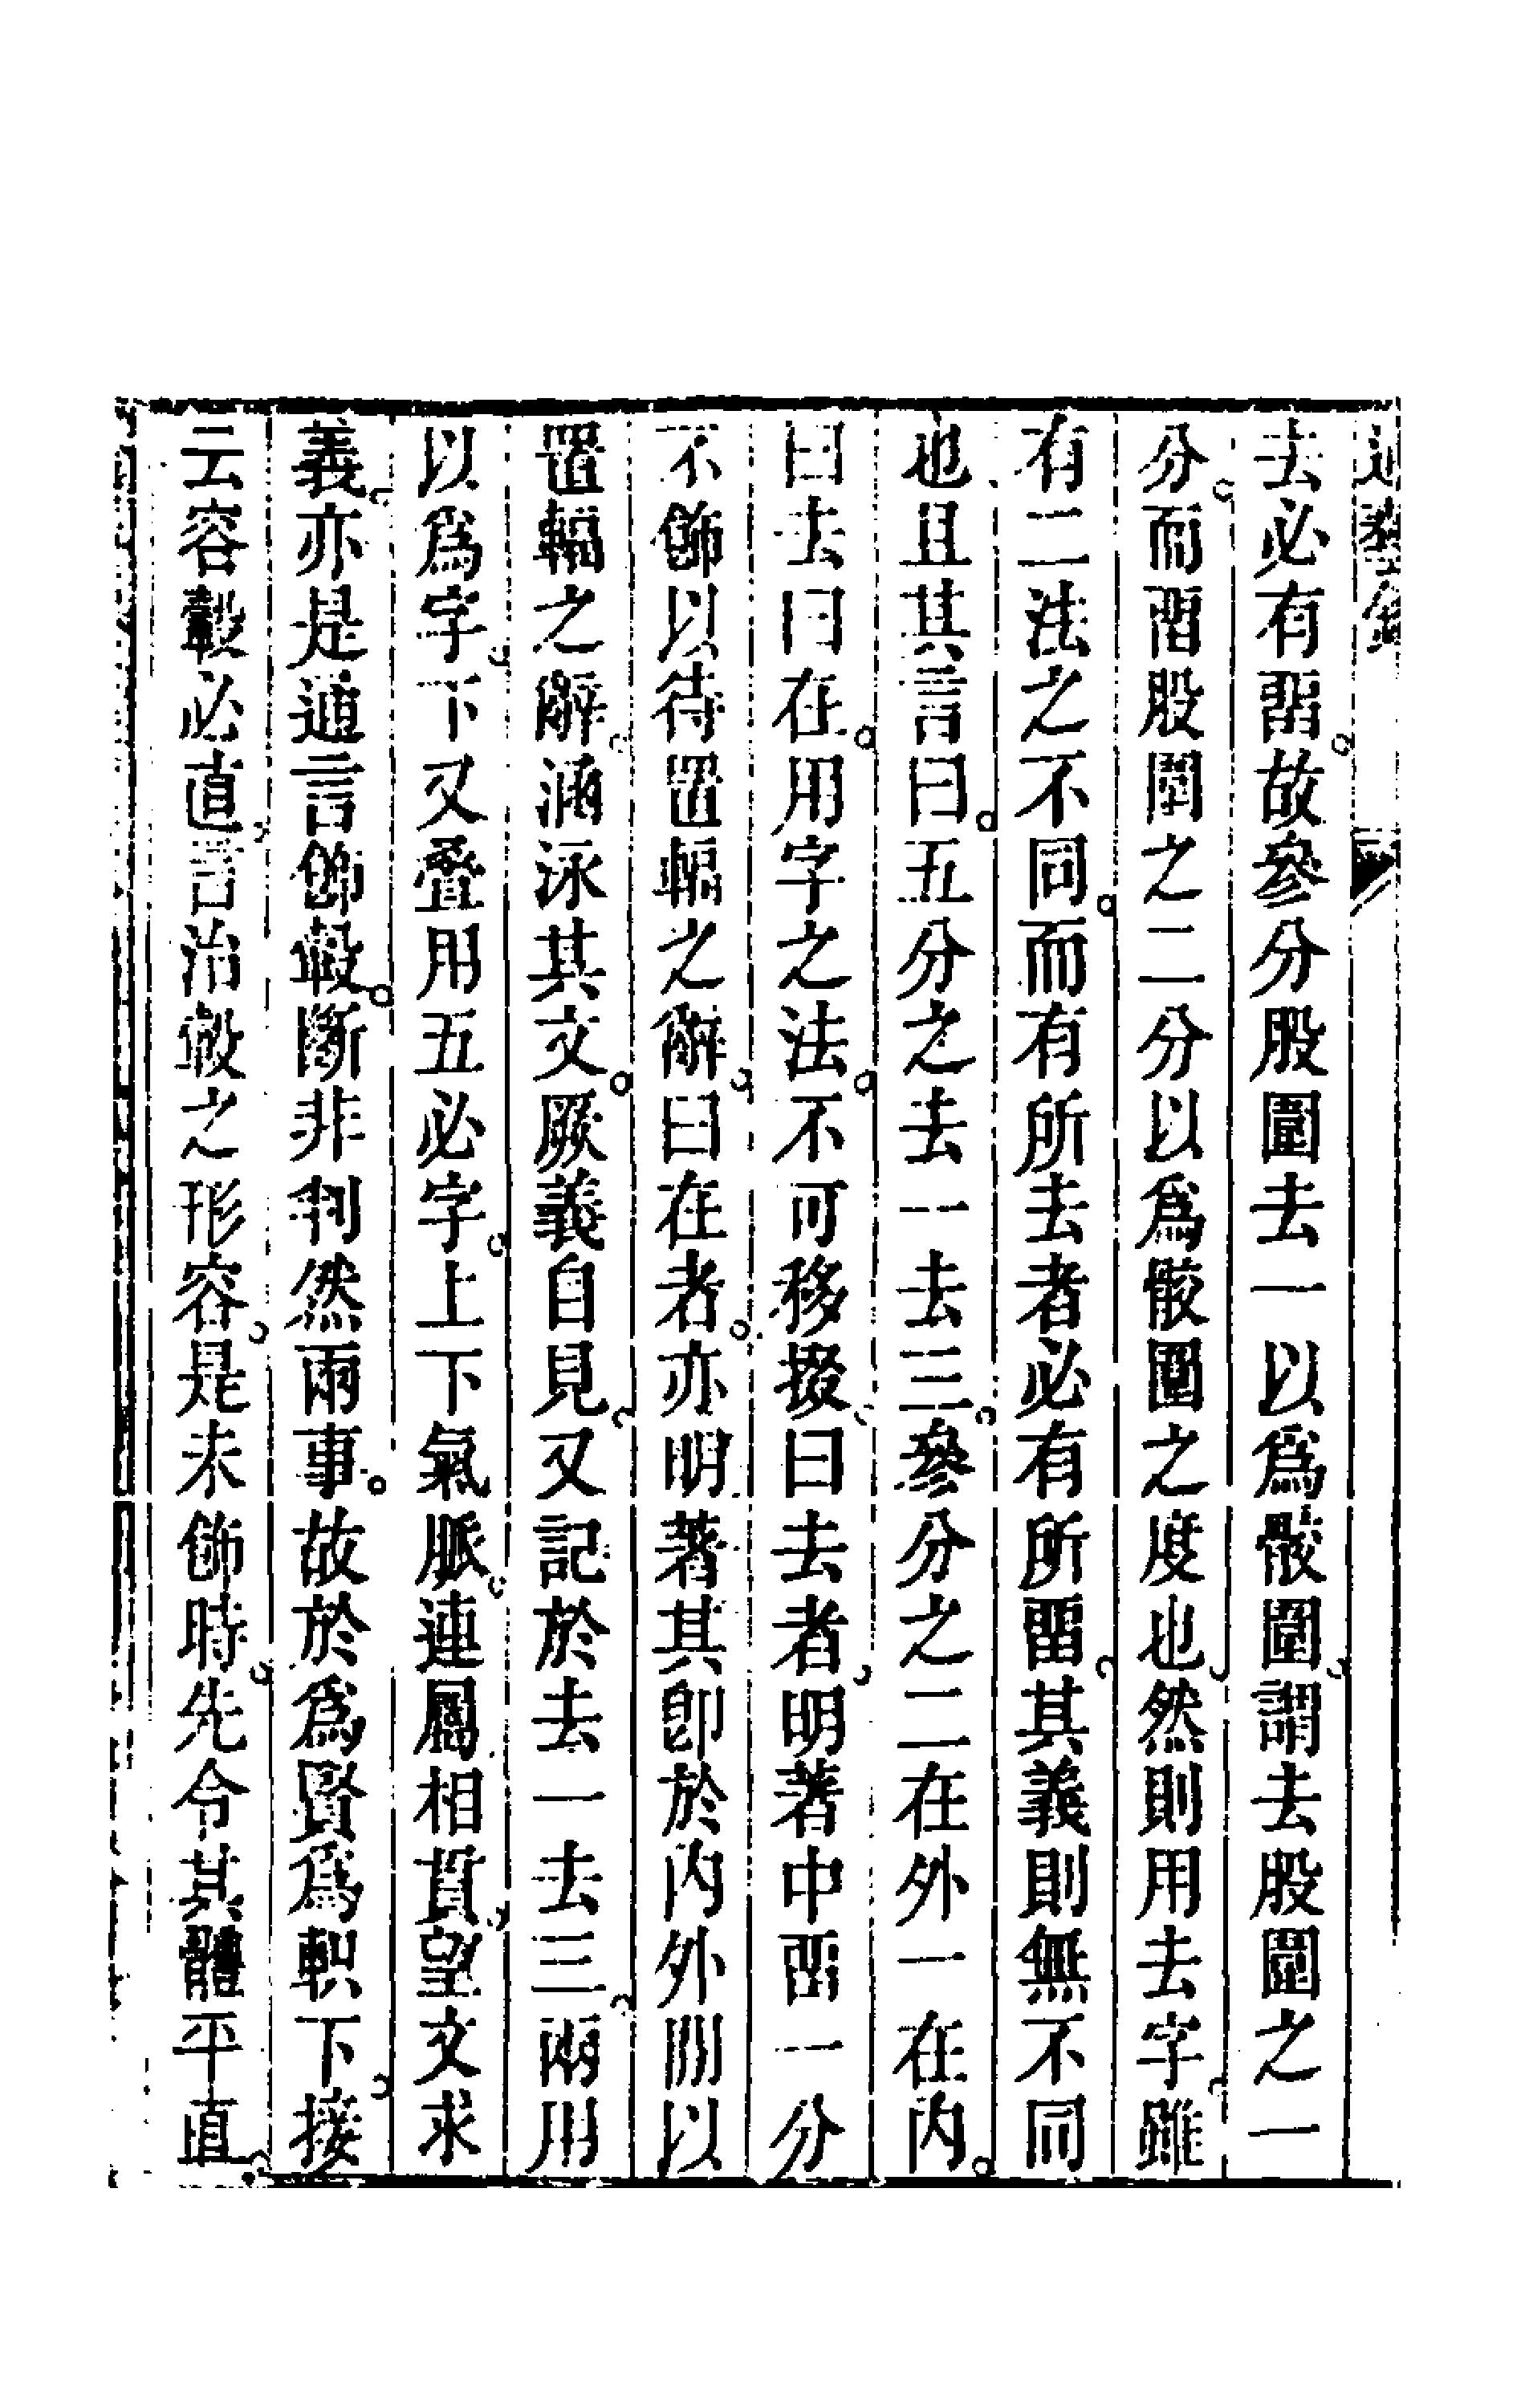 通藝錄
去必有畱故參分股圍去一以爲骹圍謂去股圍之一
分而畱股圍之二分以爲骹圍之度也然則用去字雖
有二法之不同而有所去者必有所畱其義則無不同
也且其言曰五分之去一去三參分之二在外一在內
曰去曰在用字之法不可移掇曰去者明著中畱一分
不飾以待置輻之辭曰在者亦明著其卽於內外間以
置輻之辭涵泳其文厥義自見又記於去一去三兩用
以爲字下又疊用五必字上下氣脈連屬相貫望文求
義亦是通言飾轂斷非判然兩事故於爲賢爲軹下接
云容轂必直言治轂之形容是未飾時先令其體平直